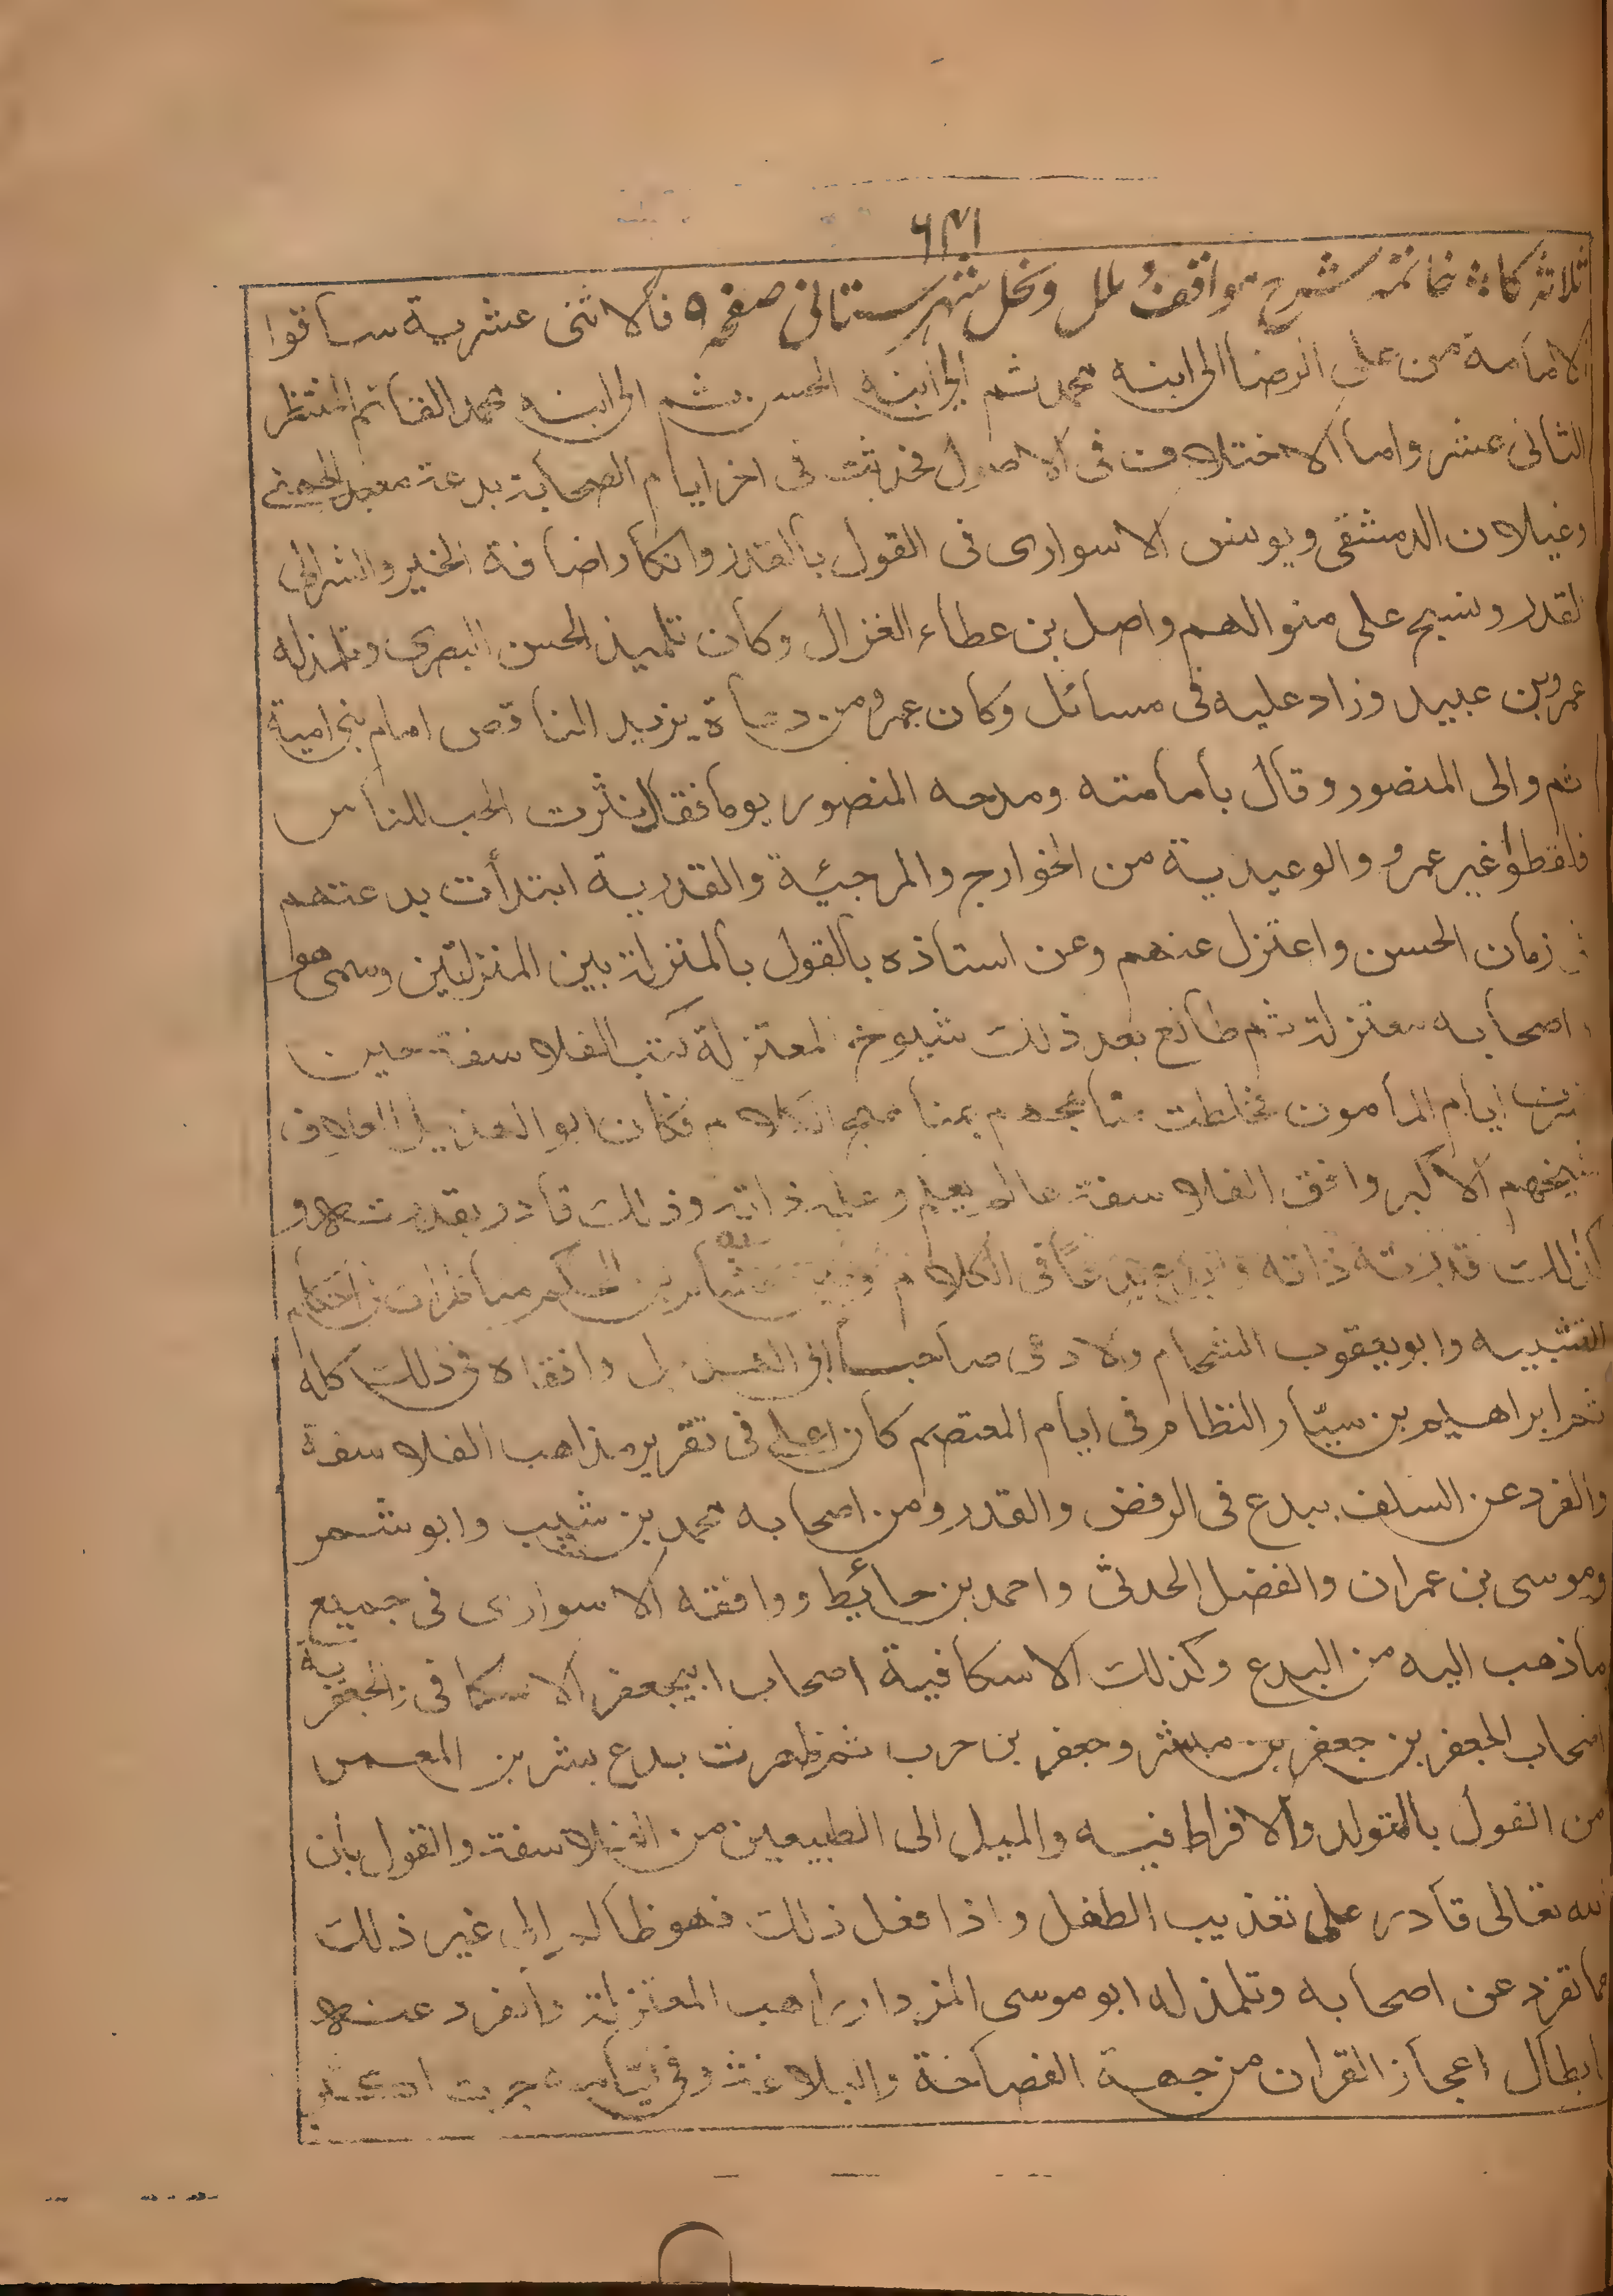 ٦٣١
ثلاثة كا خاتمه شرح مواقف ملل ونحل شهرستانی صفحه ٥ فالاثنی عشریة ساقوا
الامامة من علی الرضا الی ابنه محمد ثم الی ابنه الحسن ثم الی ابنه محمد القائم المنتظر
الثانی عشر واما الاختلاف فی الاصول فحدثت فی اخر ایام الصحابة بدعة معبد الجهنی
وغیلان الدمشقی ویونس الاسواری فی القول بالقدر وانکار اضافة الخیر والشر الی
القدر ونسج علی منوالهم واصل بن عطاء الغزال وکان تلمیذ الحسن البصری وتلمذ له
عمرو بن عبید وزاد علیه فی مسائل وکان عمرو من دعاة یزید الناقص امام بنی امیة
ثم والی المنصور وقال بامامته ومدحه المنصور یوما فقال نثرت الحب للناس
فلقطوا غیر عمرو والوعیدیة من الخوارج والمرجئة والقدریة ابتدأت بدعتهم
زمان الحسن واعتزل عنهم وعن استاذه بالقول بالمنزلة بین المنزلتین وسمی هو
واصحابه معتزلة ثم طالع بعد ذلک شیوخ المعتزلة کتب الفلاسفة حین
نشرت ایام المأمون فخلطت مناهجهم بمناهج الکلام فکان ابو الهذیل العلاف
شیخهم الاکبر وافق الفلاسفة عالم بعلم وعلمه ذاته وذلک قادر بقدرته و
کذلک قدرته ذاته وابدع بدعًا فی الکلام وبینه هشام بن الحکم مناظرات فی احکام
التشبیه وابو یعقوب الشحام والادمی صاحبا ابی الهذیل وافقاه فی ذلک کله
ثم ابراهیم بن سیّار النظام فی ایام المعتصم کان اعلی فی تقریر مذاهب الفلاسفة
وانفرد عن السلف ببدع فی الرفض والقدر ومن اصحابه محمد بن شبیب وابو شمر
وموسی بن عمران والفضل الحدثی واحمد بن حائط ووافقه الاسواری فی جمیع
ما ذهب الیه من البدع وکذلک الاسکافیة اصحاب ابی جعفر الاسکافی والجعفریة
اصحاب الجعفرین جعفر بن مبشر وجعفر بن حرب ثم ظهرت بدع بشر بن المعمر
من القول بالتولد والافراط فیه والمیل الی الطبیعین من الفلاسفة والقول بأن
الله تعالی قادر علی تعذیب الطفل واذا فعل ذلک فهو ظالم الی غیر ذلک
مما تفرد عن اصحابه وتلمذ له ابو موسی المزدار راهب المعتزلة وانفرد عنه
ابطال اعجاز القران من جهة الفصاحة والبلاغة وفی ایامه جرت اکثر